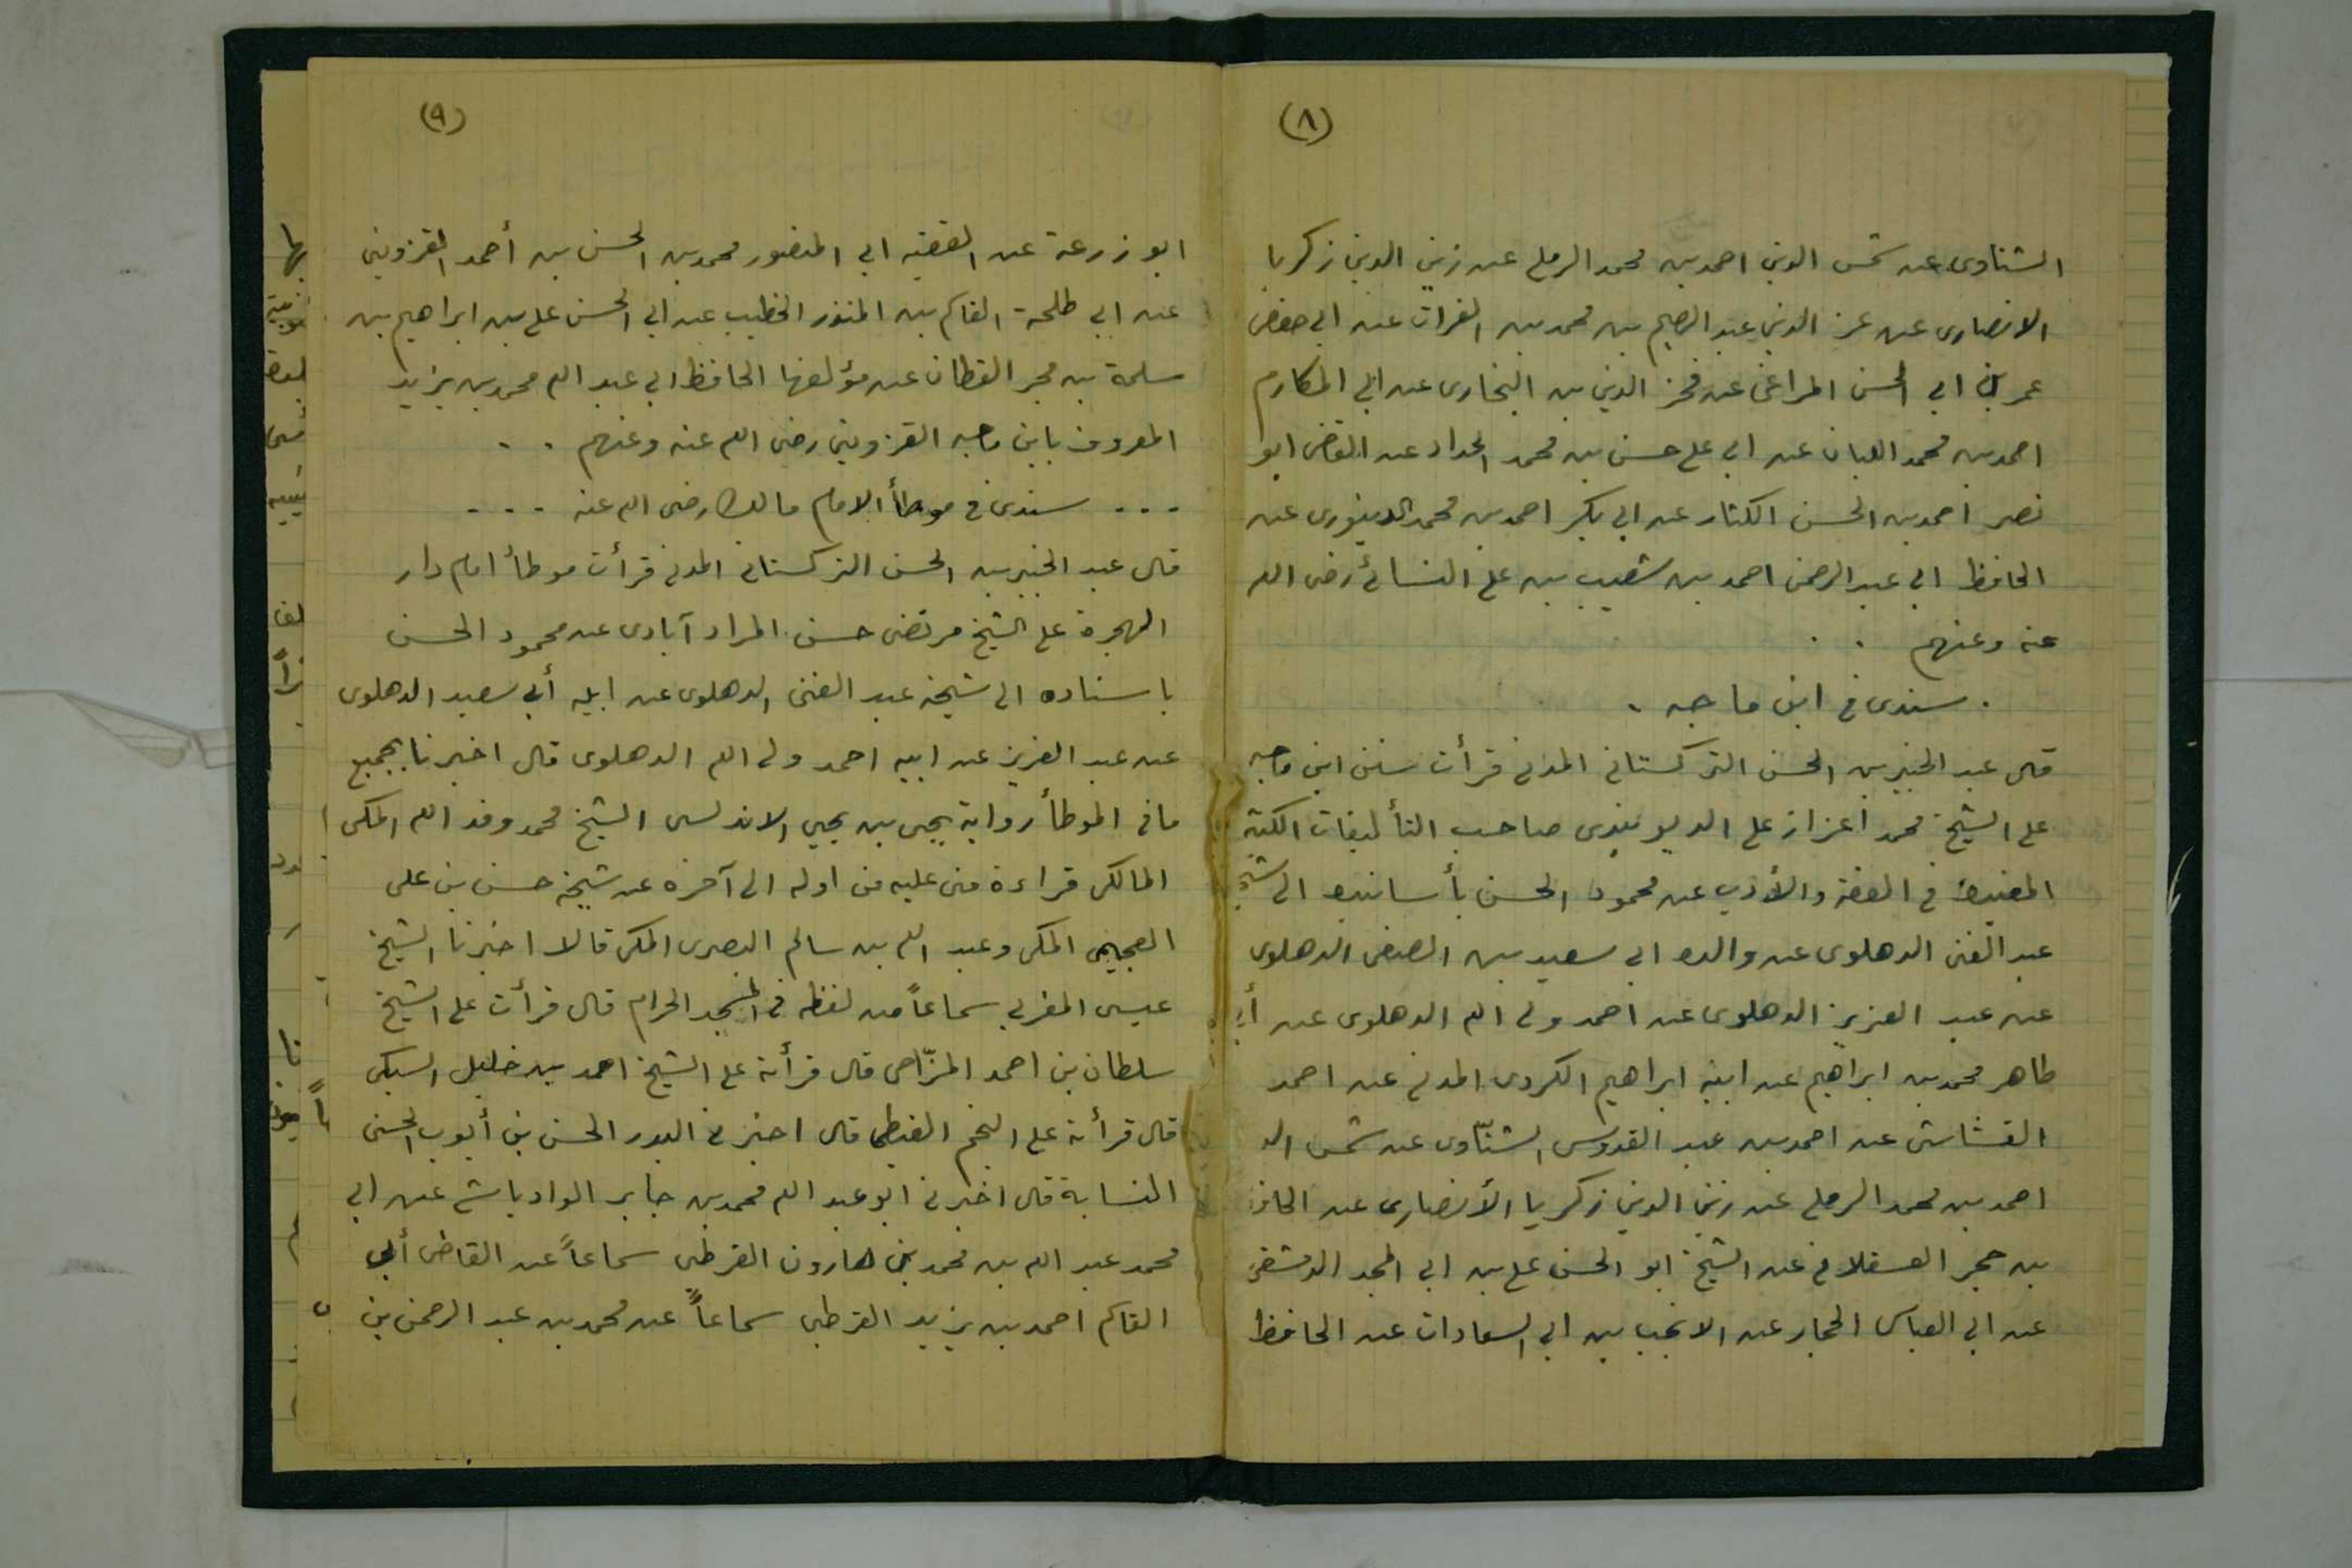 (٨)
الشناوى عن شمس الدين احمد بن محمد الرملى عن زين الدين زكريا
الانصارى عن عز الدين عبد الرحيم بن محمد بن الفرات عن ابى حفص
عمر بن ابى الحسن المراغى عن فخر الدين بن البخارى عن ابى المكارم
احمد بن محمد اللبان عن ابى على حسن بن محمد الحداد عن القاضى ابو
نصر احمد بن الحسن الكتار عن ابى بكر احمد بن محمد الدينورى عن
الحافظ ابى عبد الرحمن احمد بن شعيب بن على النسائى رضى الله
عنه وعنهم . .
. سندى فى ابن ماجه .
قال عبد الخبير بن الحسن التركستانى المدنى قرأت سنن ابن ماجه
على الشيخ محمد اعزاز على الديوبندى صاحب التأليفات الكثيرة
المفيدة فى الفقه والأدب عن محمود الحسن بأسانيده الى شيخ
عبد الغنى الدهلوى عن والده ابى سعيد بن الصفى الدهلوى
عن عبد العزيز الدهلوى عن احمد ولى الله الدهلوى عن أبى
طاهر محمد بن ابراهيم عن ابيه ابراهيم الكردى المدنى عن احمد
القشاشى عن احمد بن عبد القدوس الشنّاوى عن شمس الد
احمد بن محمد الرملى عن زين الدين زكريا الأنصارى عن الحافظ
بن حجر العسقلانى عن الشيخ ابو الحسن على بن ابى المجد الدمشقى
عن ابى العباس الحجار عن الانجب بن ابى السعادات عن الحافظ
(٩)
ابو زرعة عن الفقيه ابى المنصور محمد بن الحسن بن أحمد القزوينى
عن ابى طلحة القاسم بن المنذر الخطيب عن ابى الحسن على بن ابراهيم بن
سلمة بن بحر القطان عن مؤلفها الحافظ ابى عبد الله محمد بن يزيد
المعروف بابن ماجه القزوينى رضى الله عنه وعنهم . .
. . . سندى فى موطأ الامام مالك رضى الله عنه . . .
قال عبد الخبير بن الحسن التركستانى المدنى قرأت موطأ امام دار
الهجرة على الشيخ مرتضى حسن المراد آبادى عن محمود الحسن
باسناده الى شيخه عبد الغنى الدهلوى عن ابيه أبى سعيد الدهلوى
عن عبد العزيز عن ابيه احمد ولى الله الدهلوى قال اخبرنا بجميع
ما فى الموطأ رواية يحيى بن يحيى الاندلسى الشيخ محمد وفد الله المكى
المالكى قراءة منى عليه من اوله الى آخره عن شيخه حسن بن على
العجيمى المكى وعبد الله بن سالم البصرى المكى قالا اخبرنا الشيخ
عيسى المغربى سماعاً من لفظه فى المسجد الحرام قال قرأت على الشيخ
سلطان بن احمد المزّاحى قال قرأته على الشيخ احمد بن خليل السبكى
قال قرأته على النجم الغيطى قال اخبرنى البدر الحسن بن أيوب الحسنى
النسابة قال اخبرنى ابو عبد الله محمد بن جابر الوادياشى عن ابى
محمد عبد الله بن محمد بن هارون القرطبى سماعاً عن القاضى أبى
القاسم احمد بن يزيد القرطبى سماعاً عن محمد بن عبد الرحمن بن